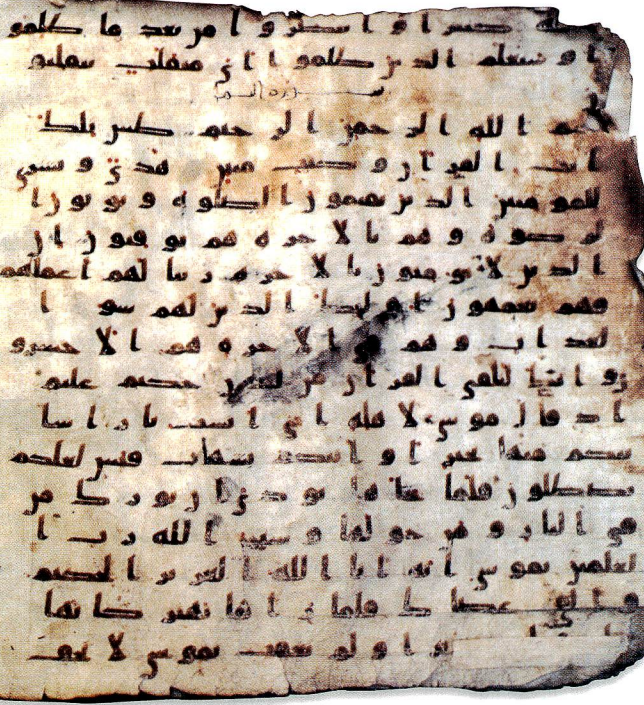 الله كثيرا وانتصروا من بعد ما ظلمو
ا وسيعلم الذين ظلموا اي منقلب ينقلبو
سورة النمل
بسم الله الرحمن الرحيم طس تلك
ايت القران وكتب مبين هدى وبشرى
للمومنين الذين يقيمون الصلوه ويوتون ا
لزكوه وهم بالاخره هم يوقنون ان
الذين لا يومنون بالاخره زينا لهم اعملهم
فهم يعمهون اوليك الذين لهم سو ا
لعذاب وهم في الاخره هم الاخسرو
ن وانك لتلقى القران من لدن حكيم عليم
اذ قال موسى لاهله اني انست نارا سا
تيكم منها بخبر او اتيكم بشهاب قبس لعلكم
تصطلون فلما جاها نودي ان بورك من
في النار ومن حولها وسبحن الله رب ا
لعلمين يموسى انه انا الله العزيز الحكيم
والق عصاك فلما راها تهتز كانها
مدبرا ولم يعقب يموسى لا تخف